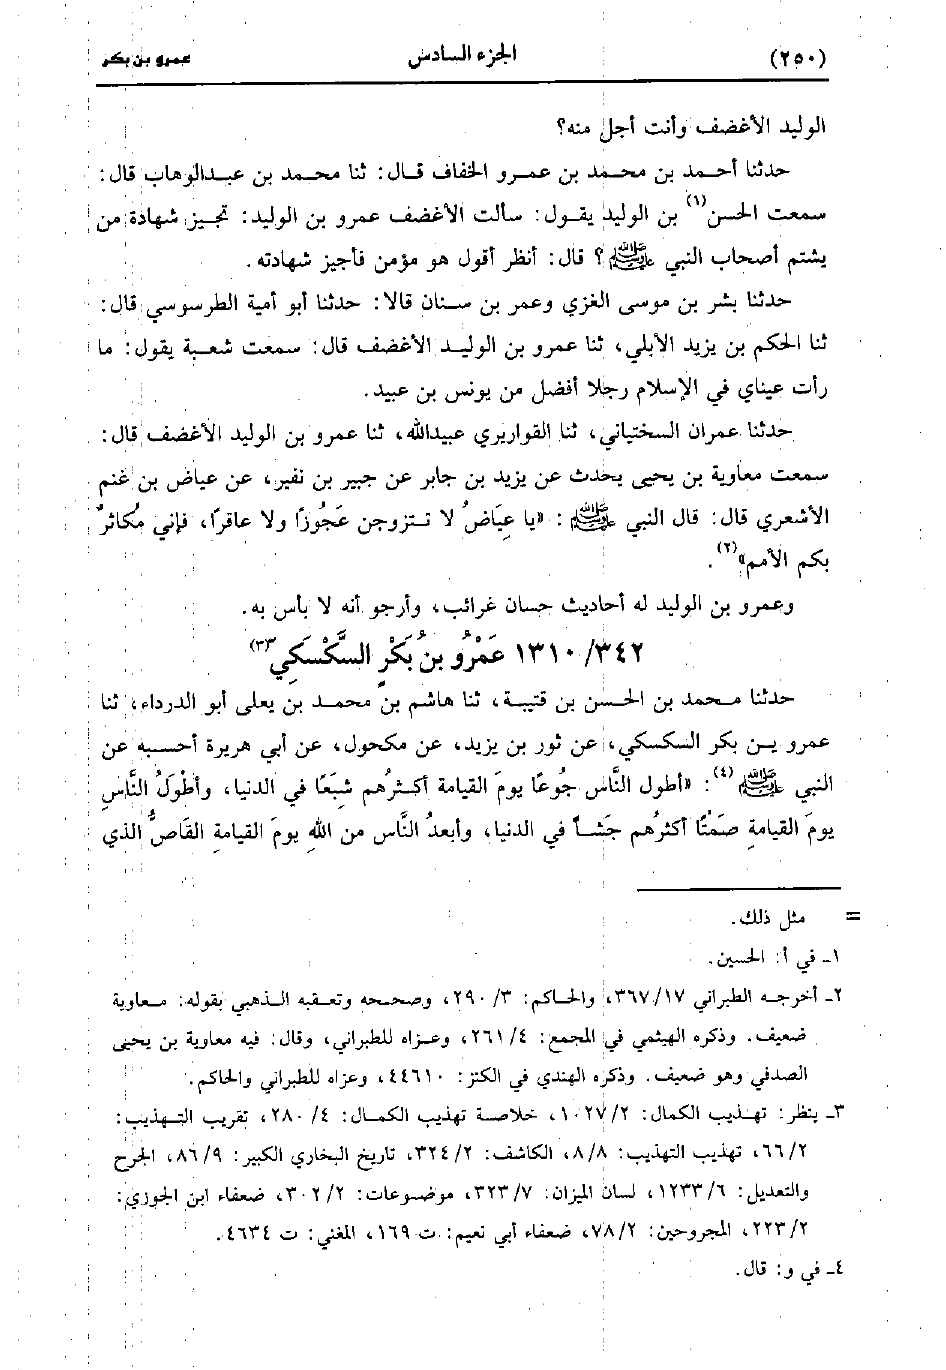 (٢٥٠) الجزء السادس عمرو بن بكر
الوليد الأغضف وأنت أجل منه؟
حدثنا أحمد بن محمد بن عمرو الخفاف قال: ثنا محمد بن عبدالوهاب قال:
سمعت الحسن(١) بن الوليد يقول: سألت الأغضف عمرو بن الوليد: تجيز شهادة من
يشتم أصحاب النبي ﷺ؟ قال: أنظر أقول هو مؤمن فأجيز شهادته.
حدثنا بشر بن موسى الغزي وعمر بن سنان قالا: حدثنا أبو أمية الطرسوسي قال:
ثنا الحكم بن يزيد الأبلي، ثنا عمرو بن الوليد الأغضف قال: سمعت شعبة يقول: ما
رأت عيناي في الإسلام رجلا أفضل من يونس بن عبيد.
حدثنا عمران السختياني، ثنا القواريري عبيدالله، ثنا عمرو بن الوليد الأغضف قال:
سمعت معاوية بن يحيى يحدث عن يزيد بن جابر عن جبير بن نفير، عن عياض بن غنم
الأشعري قال: قال النبي ﷺ: «يا عِيَاضُ لا تتزوجن عَجُوزًا ولا عاقرًا، فإني مُكاثرٌ
بكم الأمم»(٢).
وعمرو بن الوليد له أحاديث حسان غرائب، وأرجو أنه لا بأس به.
١٣١٠/٣٤٢ عَمْرُو بنُ بَكْرٍ السَّكْسَكِي(٣)
حدثنا محمد بن الحسن بن قتيبة، ثنا هاشم بن محمد بن يعلى أبو الدرداء، ثنا
عمرو بن بكر السكسكي، عن ثور بن يزيد، عن مكحول، عن أبي هريرة أحسبه عن
النبي ﷺ(٤): «أطول النَّاس جُوعًا يومَ القيامة أكثرُهم شِبَعًا في الدنيا، وأطْوَلُ النَّاسِ
يومَ القيامةِ صَمْتًا أكثرُهم جَشأ في الدنيا، وأبعدُ النَّاس من اللهِ يومَ القيامةِ القَاصُّ الذي
= مثل ذلك.
١ـ في أ: الحسين.
٢ـ أخرجه الطبراني ٣٦٧/١٧، والحاكم: ٢٩٠/٣، وصححه وتعقبه الذهبي بقوله: معاوية
ضعيف. وذكره الهيثمي في المجمع: ٢٦١/٤، وعزاه للطبراني، وقال: فيه معاوية بن يحيى
الصدفي وهو ضعيف. وذكره الهندي في الكنز: ٤٤٦١٠، وعزاه للطبراني والحاكم.
٣ـ ينظر: تهذيب الكمال: ١٠٢٧/٢، خلاصة تهذيب الكمال: ٢٨٠/٤، تقريب التهذيب:
٦٦/٢، تهذيب التهذيب: ٨/٨، الكاشف: ٣٢٤/٢، تاريخ البخاري الكبير: ٨٦/٩، الجرح
والتعديل: ١٢٣٣/٦، لسان الميزان: ٣٢٣/٧، موضوعات: ٣٠٢/٢، ضعفاء ابن الجوزي:
٢٢٣/٢، المجروحين: ٧٨/٢، ضعفاء أبي نعيم: ت ١٦٩، المغني: ت ٤٦٣٤.
٤ـ في و: قال.